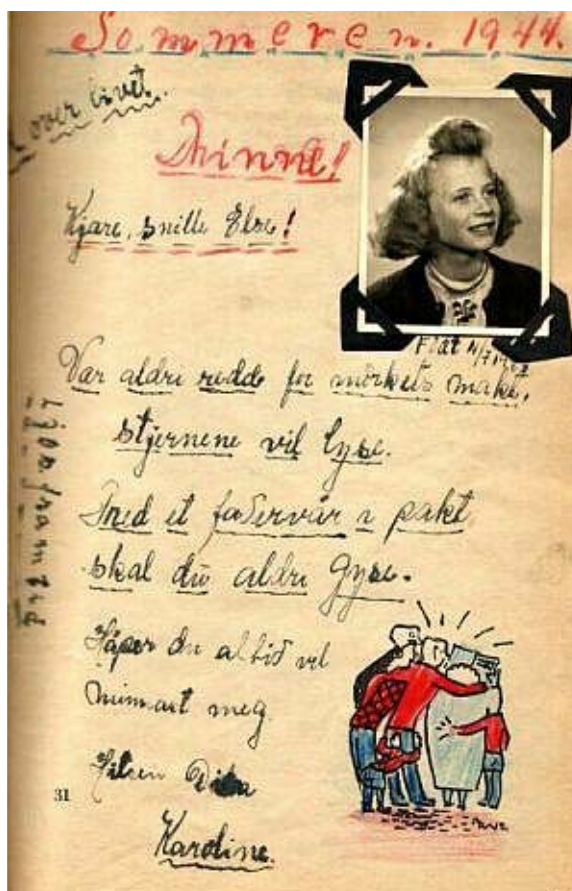 Sommeren. 1944.
over livet.
Minne!
Kjære, snille Else!
Flat 11/7
Vær aldri redde for mörkets makt,
stjernene vil lyse.
Med et fadervår i pakt
skal du aldri gyse.
Håper du altid vil
meg.
Hilsen Di
Karoline.
31